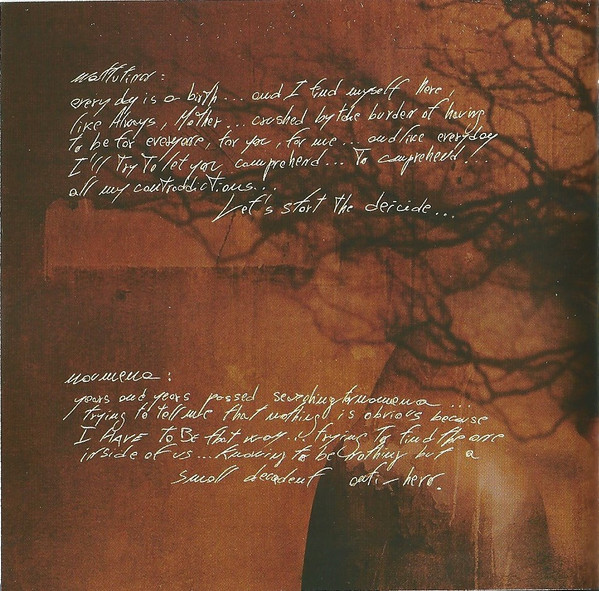 mattutino:
every day is a birth... and I find myself here,
like Always, Mother... crushed by the burden of having
to be for everyone, for you, for me... and like everyday
I'll try to let you comprehend... to comprehend...
all my contraddictions...
Let's start the deicide...
noumena:
years and years passed searching for noumena...
trying to tell me that nothing is obvious because
I HAVE TO BE that way... trying to find the one
inside of us... knowing to be nothing but a
small decadent anti-hero.